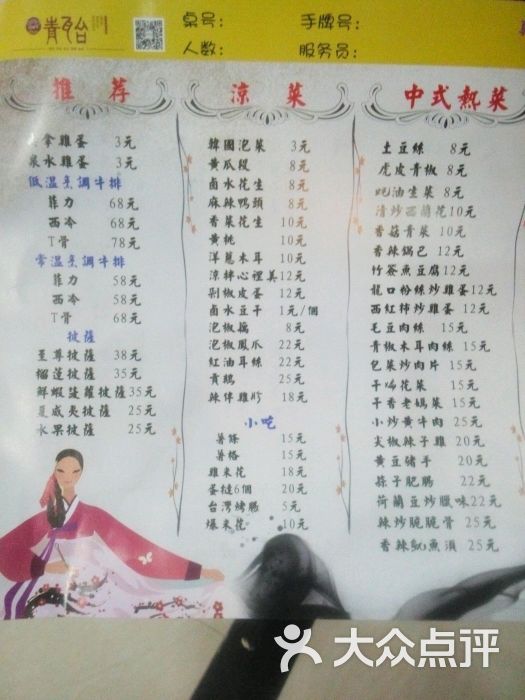 青瓦台
桌号: 手牌号:
人数: 服务员:
推荐
拿雞蛋 3元
泉水雞蛋 3元
低温烹調牛排
菲力 68元
西冷 68元
T骨 78元
常温烹調牛排
菲力 58元
西冷 58元
T骨 68元
披薩
至尊披薩 38元
榴莲披薩 35元
鮮蝦菠蘿披薩 35元
夏威夷披薩 25元
水果披薩 25元
涼菜
韓國泡菜 3元
黄瓜段 8元
鹵水花生 8元
麻辣鸭頭 8元
香菜花生 10元
黄桃 10元
洋葱木耳 10元
涼拌心裡美 12元
剁椒皮蛋 12元
鹵水豆干 1元/個
泡椒藕 8元
泡椒鳳爪 22元
紅油耳絲 22元
貢鵝 25元
辣拌雞胗 18元
小吃
薯條 15元
薯格 15元
雞米花 18元
蛋撻6個 20元
台灣烤腸 5元
爆米花 10元
中式熱菜
土豆絲 8元
虎皮青椒 8元
蚝油生菜 8元
清炒西蘭花 10元
香菇青菜 10元
香辣锅巴 12元
竹签魚豆腐 12元
龍口粉絲炒雞蛋 12元
西紅柿炒雞蛋 12元
毛豆肉絲 15元
青椒木耳肉絲 15元
包菜炒肉片 15元
干鍋花菜 15元
干香老媽菜 15元
小炒黄牛肉 25元
尖椒辣子雞 20元
黄豆猪手 20元
蒜子肥腸 22元
荷蘭豆炒臘味 22元
辣炒脆脆骨 25元
香辣魷魚須 25元
大众点评